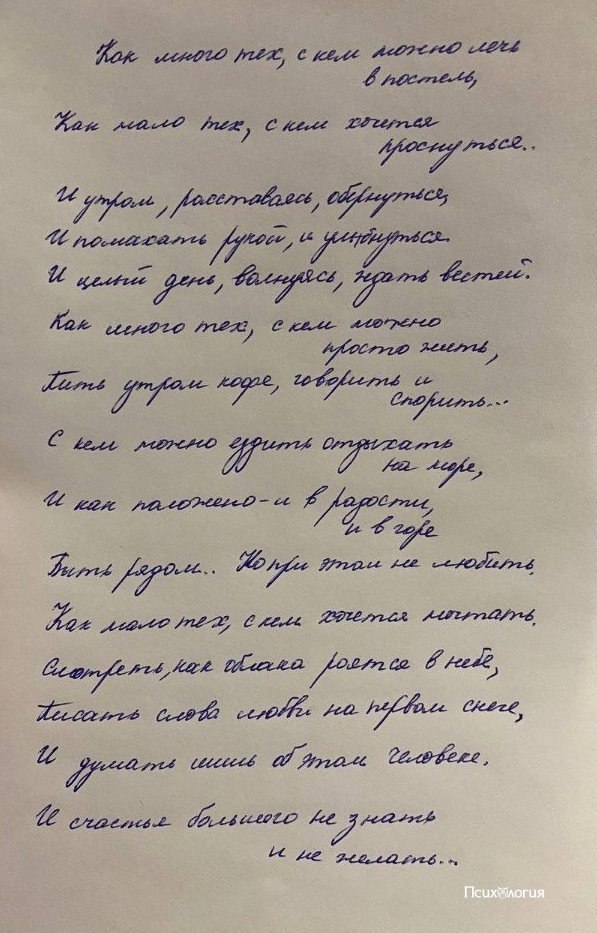 Как много тех, с кем можно лечь
в постель,
Как мало тех, с кем хочется
проснуться..
И утром, расставаясь, обернуться,
И помахать рукой, и улыбнуться
И целый день, волнуясь, ждать вестей.
Как много тех, с кем можно
просто жить,
Пить утром кофе, говорить и
спорить...
С кем можно ездить отдыхать
на море,
И как положено - и в радости,
и в горе
Быть рядом.. Но при этом не любить.
Как мало тех, с кем хочется мечтать.
Смотреть, как облака роятся в небе,
Писать слова любви на первом снеге,
И думать лишь об этом человеке.
И счастья большего не знать
и не желать...
Психология